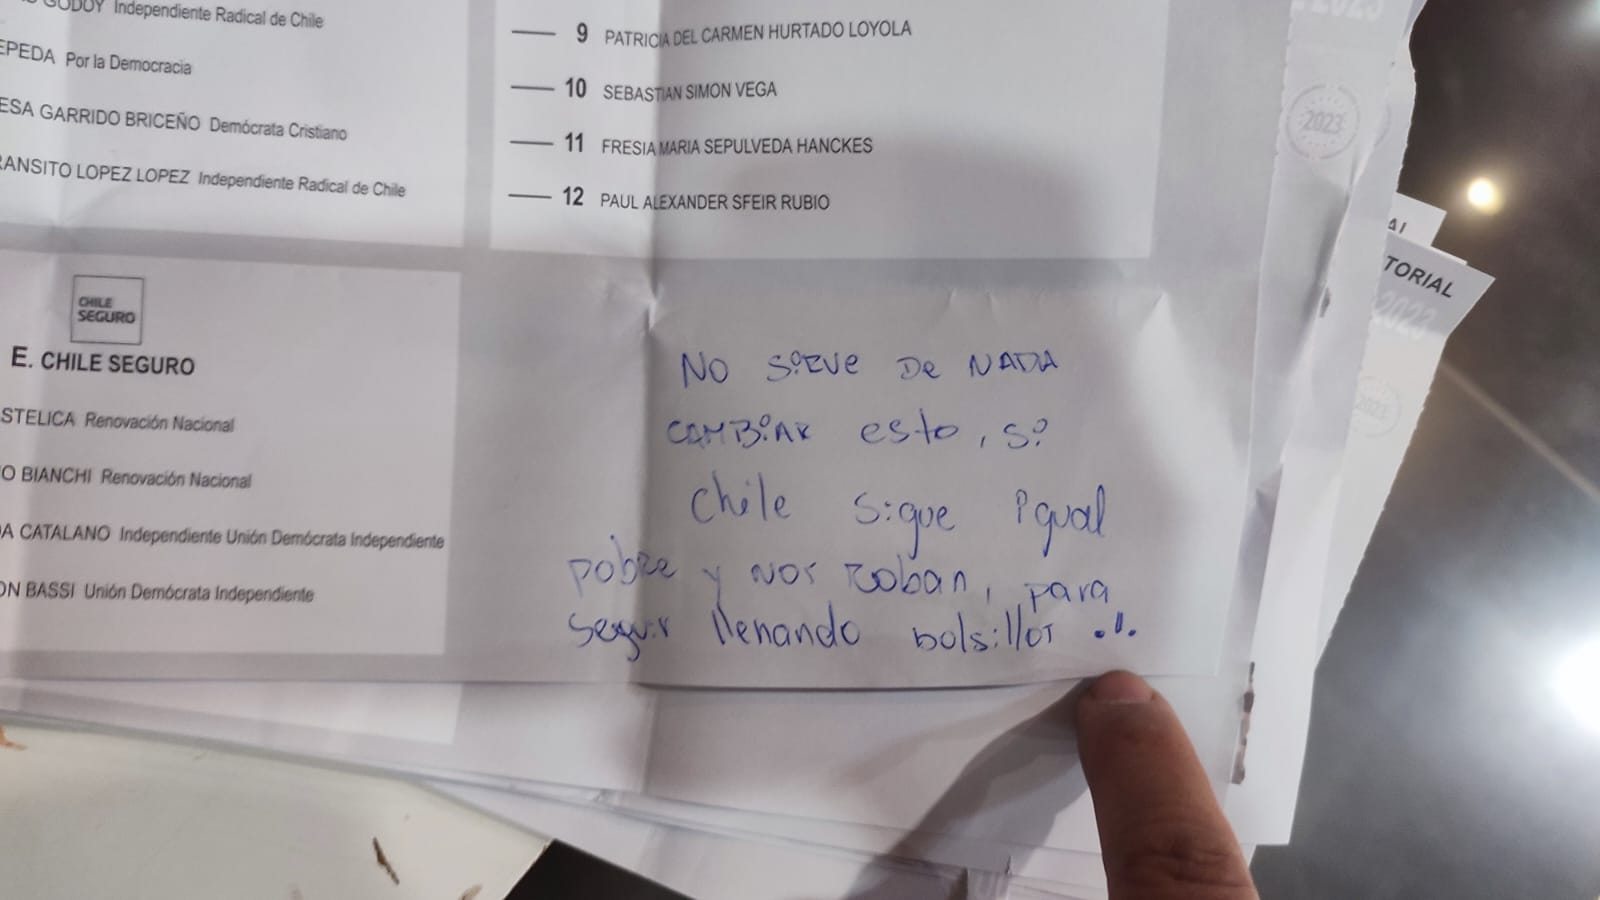 GODOY Independiente Radical de Chile
EPEDA Por la Democracia
ESA GARRIDO BRICEÑO Demócrata Cristiano
RANSITO LOPEZ LOPEZ Independiente Radical de Chile
9 PATRICIA DEL CARMEN HURTADO LOYOLA
10 SEBASTIAN SIMON VEGA
11 FRESIA MARIA SEPULVEDA HANCKES
12 PAUL ALEXANDER SFEIR RUBIO
CHILE
SEGURO
E. CHILE SEGURO
STELICA Renovación Nacional
O BIANCHI Renovación Nacional
DA CATALANO Independiente Unión Demócrata Independiente
ON BASSI Unión Demócrata Independiente
NO SiRVe De NADA
CAMBiAR esto, si
chile sigue igual
pobre y nos Roban, para
seguir llenando bolsillos !!
2023
2023
AL
TORIAL
2023
2023